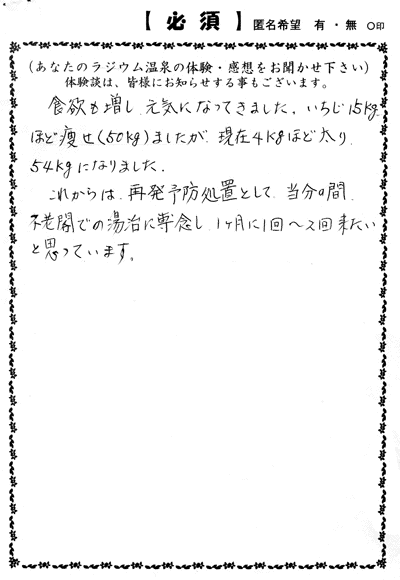 【 必 須 】 匿名希望 有 ・ 無 ○印
(あなたのラジウム温泉の体験・感想をお聞かせ下さい)
体験談は、皆様にお知らせする事もございます。
食欲も増し 元気になってきました。いちじ15kg
ほど痩せ(50kg)ましたが、現在4kgほど太り
54kgになりました.
これからは、再発予防処置として、当分の間、
不老閣での湯治に専念し 1ヶ月に1回〜2回来たい
と思っています。